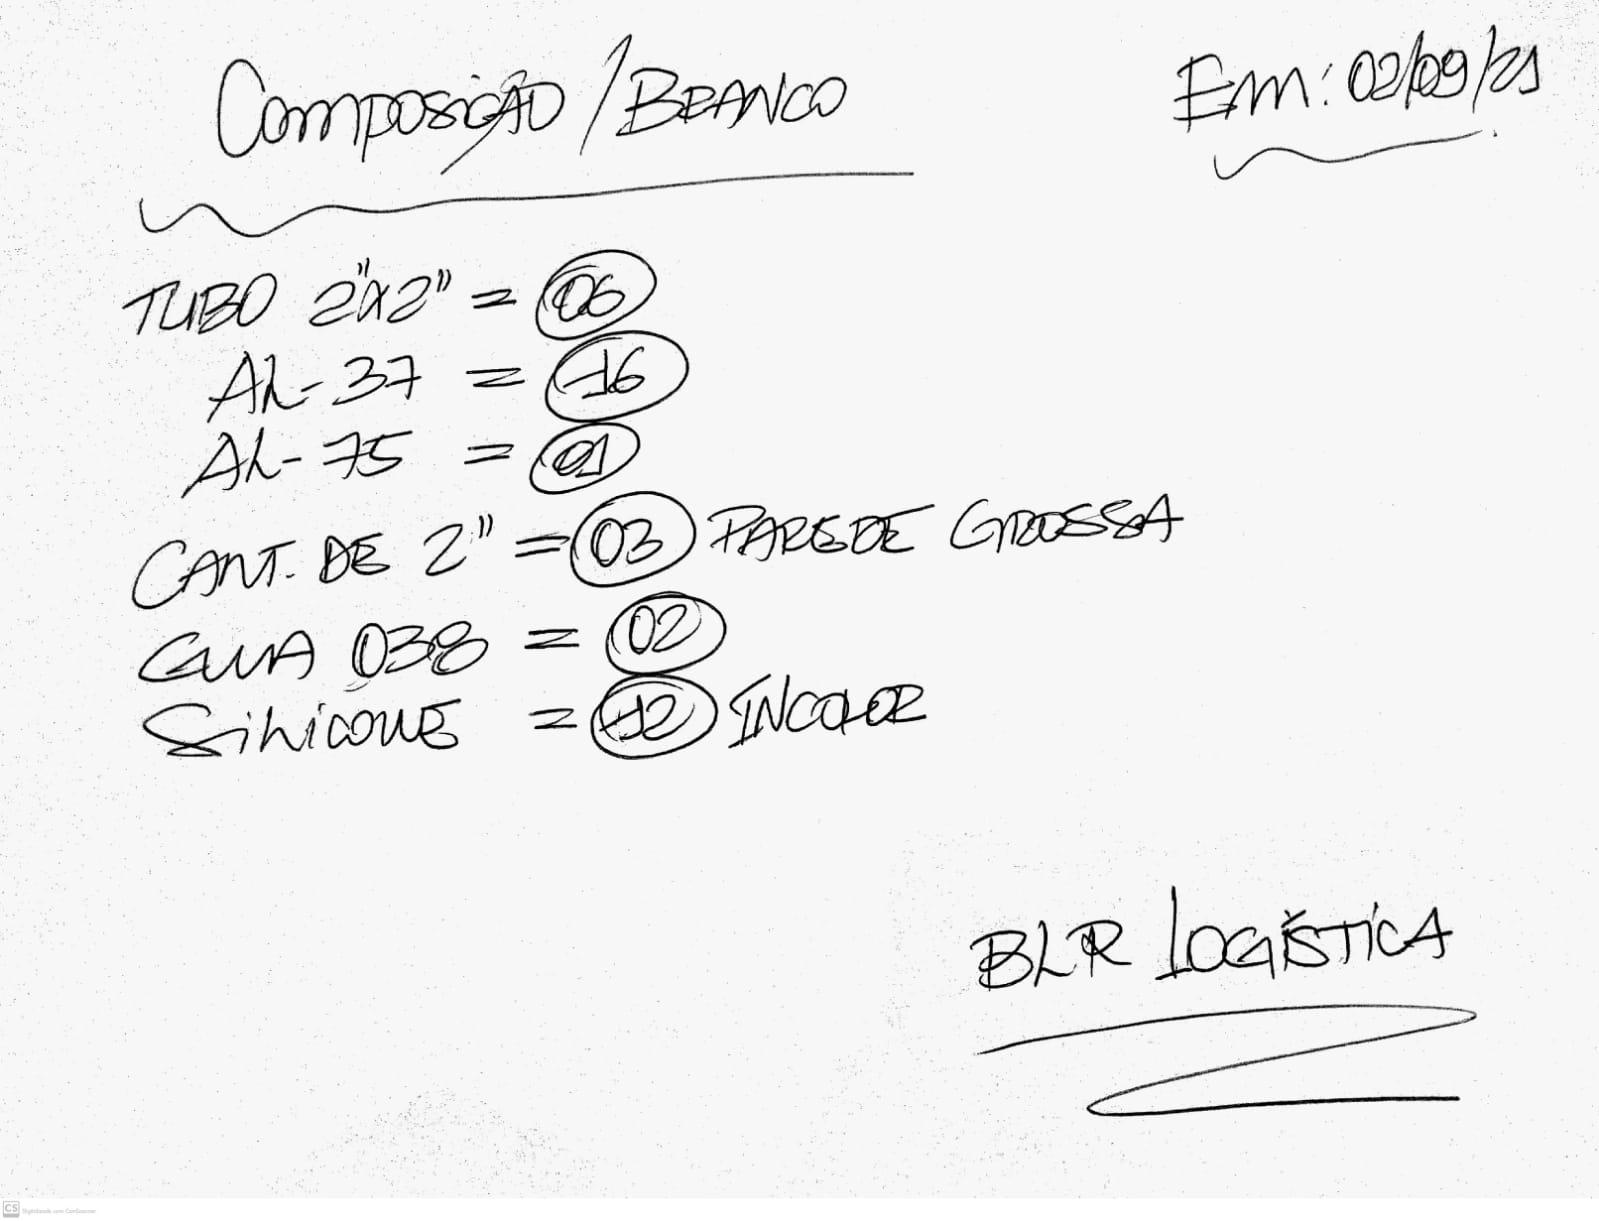 COMPOSIÇÃO / BRANCO
Em: 02/09/21
TUBO 2"X2" = 06
AL-37 = 16
AL-75 = 01
CANT. DE 2" = 03 PAREDE GROSSA
GUIA 038 = 02
SILICONE = 12 INCOLOR
BLR LOGÍSTICA
CS Digitalizado com CamScanner